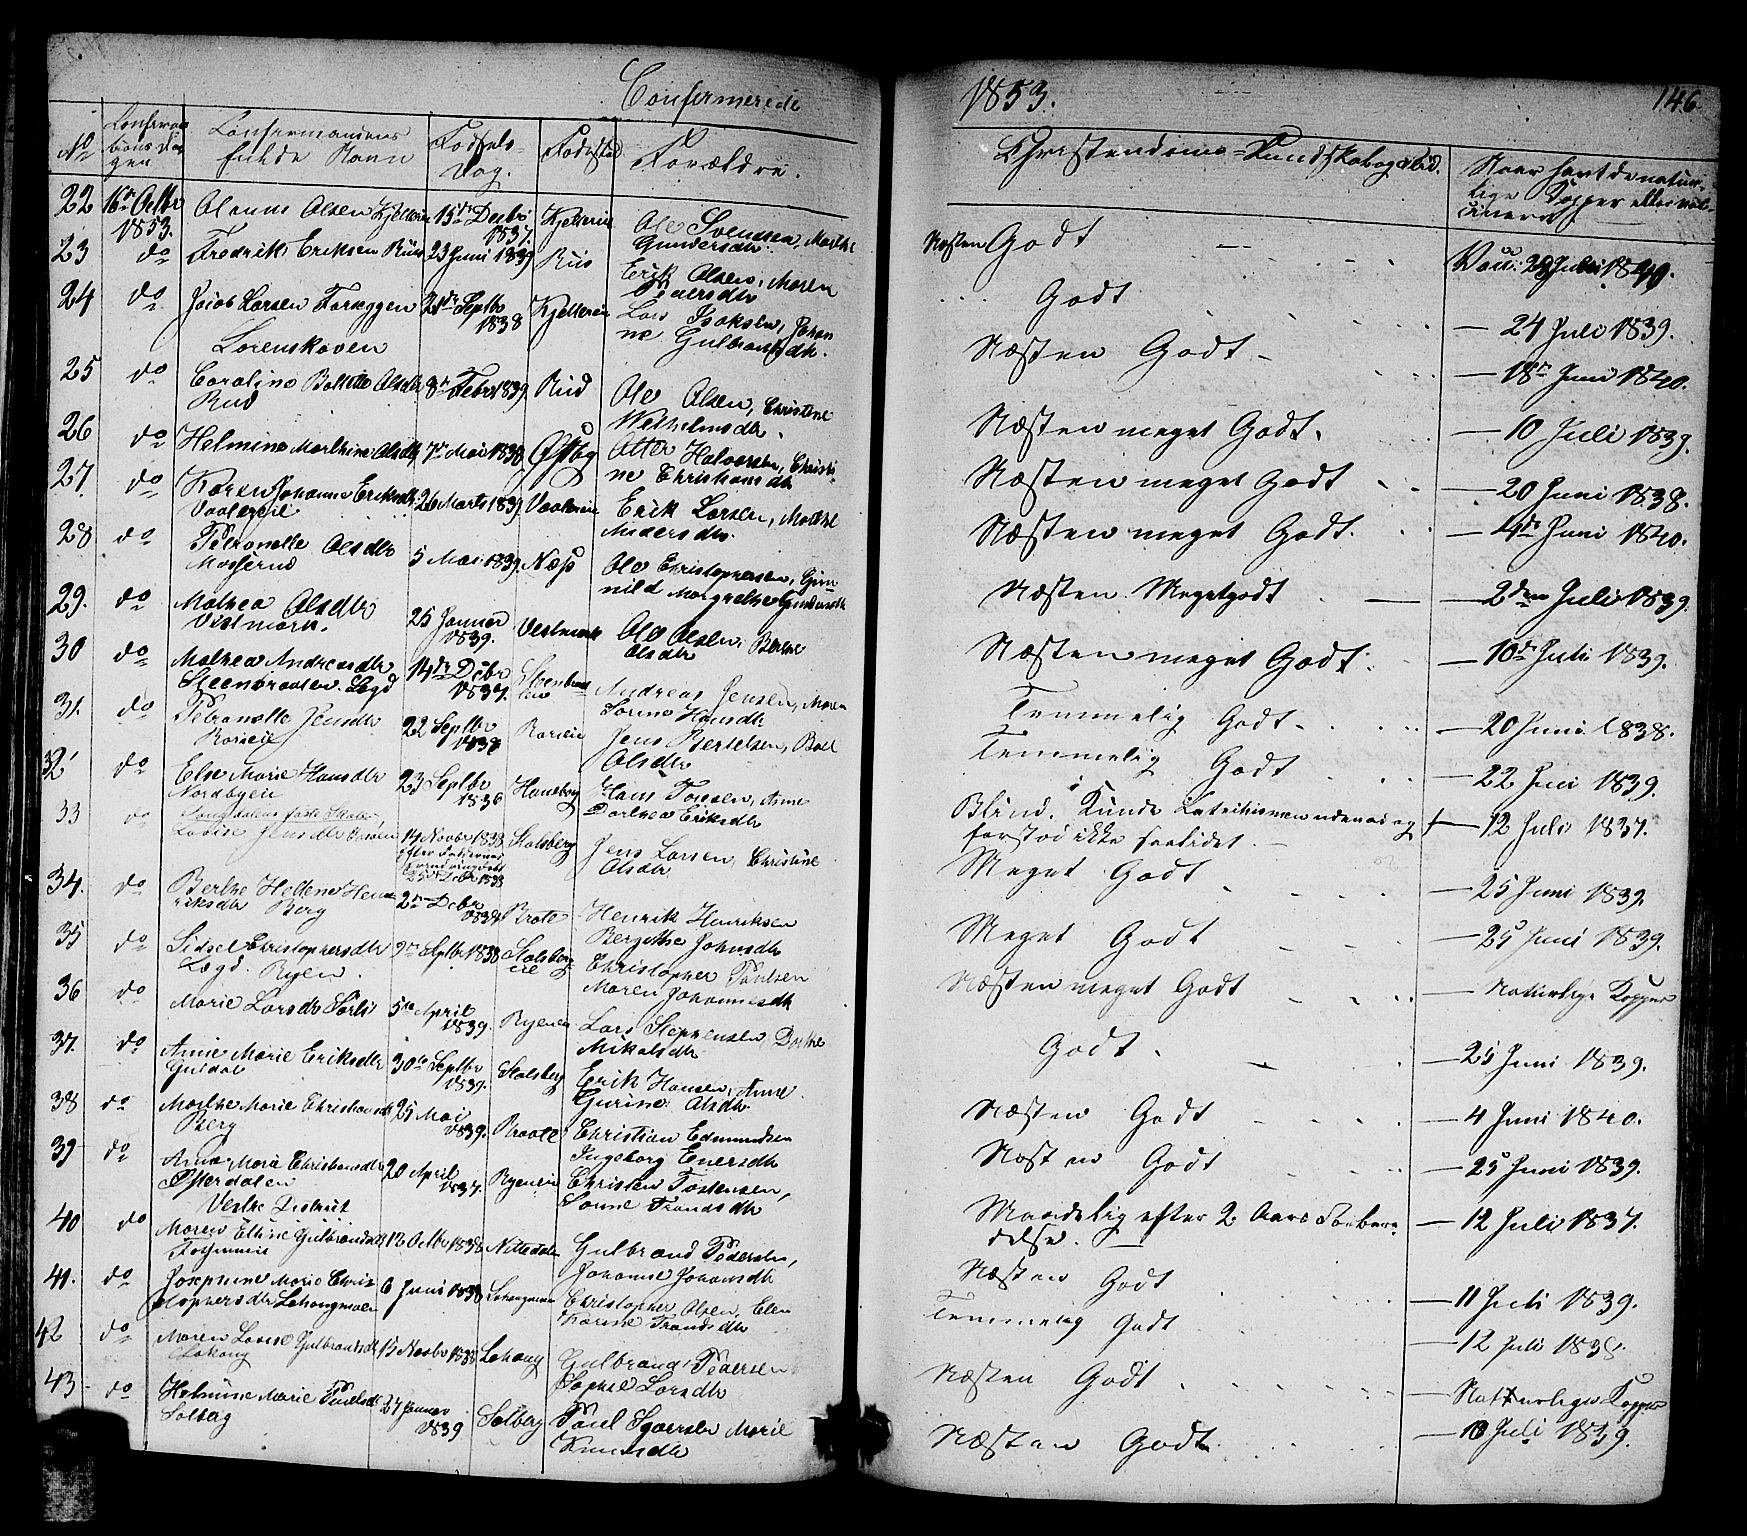 Confermerede
1853.
146.
No
Confirmationsdagen
Confermandens fulde Navn
Fødsels-Dag.
Fødested
Forældre.
Christendoms-Kundskab og Flid.
Naar havt de naturlige Kopper eller vaccinerede
22 16de Octbr 1853. Olanus Olsen Kjelleren 15de Decbr 1837. Kjelleren Ole Svendsen, Marthe Gundersdtr. Næsten Godt Vacc: 29 Juli 1849.
23 do Fredrik Eriksen Riis 23 Juni 1839 Riis Erik Olsen, Maren Pedersdtr Godt 24 Juli 1839.
24 do Jacob Larsen Toreggen Lorenskoven Septbr 1838 Kjelleren Lars Isaksen, Johanne Gulbrandsdtr. Næsten Godt 18de Juni 1840.
25 do Caroline Bolette Olsdtr Rud 8de Febr 1839 Rud Ole Olsen, Christine Wilhelmsdtr. Næsten meget Godt. 10 Juli 1839.
26 do Helmine Marthine Olsdtr 7de Mai 1838 Østby Otter Halvorsen, Christine Christiansdtr Næsten meget Godt 20 Juni 1838.
27. do Karen Johanne Eriksdtr Vaalereie 26 Marts 1839 Vaalereie Erik Larsen, Marthe Andersdtr. Næsten meget Godt. 4de Juni 1840.
28 do Petronelle Olsdtr Mosserud 5 Mai 1839. Næss Ole Christophersen, Gunnild Margrethe Gundersdtr Næsten Megetgodt 2den Juli 1839.
29. do Mathea Olsdtr Vestmark. 25 Januar 1839. Vestmark Ole Olsen, Berthe Olsdtr Næsten meget Godt. 10de Juli 1839.
30 do Mathea Andreasdtr Steenbraaten Lægd 14de Debr 1837. Steenbraaten Andreas Jensen, Maren Sorine Hansdtr Temmelig Godt. 20 Juni 1838.
31. do Petronelle Jensdtr 22 Septbr Jens Bertelsen, Boel Olsdtr Temmelig Godt 22 Juni 1839.
32 do Else Marie Hansdtr Nordbyeie 23 Septbr 1836 Haneborg Hans Toresen, Anne Dorthea Eriksdtr Blind. Kunde Katekismen udenad og forstod ikke saalidet. 12 Juli 1837.
33 do Lovise Jensdtr 14 Novbr 1838 Stalsberg Jens Larsen, Christine Olsdtr Meget Godt 25 Juni 1839.
34. do Berthe Hellene Henriksdtr Berg 2den Debr Braate Henrik Henriksen Bergethe Johnsdtr Meget Godt 25 Juni 1839.
35 do Sidsel Christophersdtr Lægd. Ryen. 9de Septbr 1838 Stalsbergeie Christopher Poulsen Maren Johannesdtr Næsten meget Godt Naturlige Kopper
36 do Marie Larsdtr Sørli 5te April 1839. Ryeneie Lars Stephensen Dorthe Mikalsdtr Godt. 25 Juni 1839.
37. do Anne Marie Eriksdtr Guldal 30te Septbr 1839. Stalsberg Erik Hansen, Anne Gurine Olsdtr Næsten Godt 4 Juni 1840.
38 do Marthe Marie Christiansdtr Berg 25 Mai 1839. Braate Christian Edmundsen Ingeborg Enersdtr Næsten Godt 25 Juni 1839.
39 do Anne Marie Christensdtr Østerdalen 20 April 1837. Ryeneie Christen Tostensen, Sonne Trondsdtr Maadelig efter 2 Aars Forberedelse. 12 Juli 1837.
Vestre District
40 do Maren Eline Gulbrandsdtr 12 Octbr 1838 Nittedalen Gulbrand Pedersen, Johanne Johansdtr Næsten Godt 11 Juli 1839.
41. do Josephine Marie Christophersdtr Lahaugmoen 6 Juni 1838 Lahaugmoen Christopher Olsen, Elen Karine Trondsdtr Temmelig Godt 12 Juli 1838.
42 do Maren Lovise Gulbrandsdtr Lahaug 15 Novbr 1838 Lahaug Gulbrand Pedersen Sophie Larsdtr Næsten Godt Naturlige Kopper
43 do Helmine Marie Poulsdtr Solberg 27 Januar 1839 Solberg Poul Syversen Marie Knudsdtr Næsten Godt 10 Juli 1839.